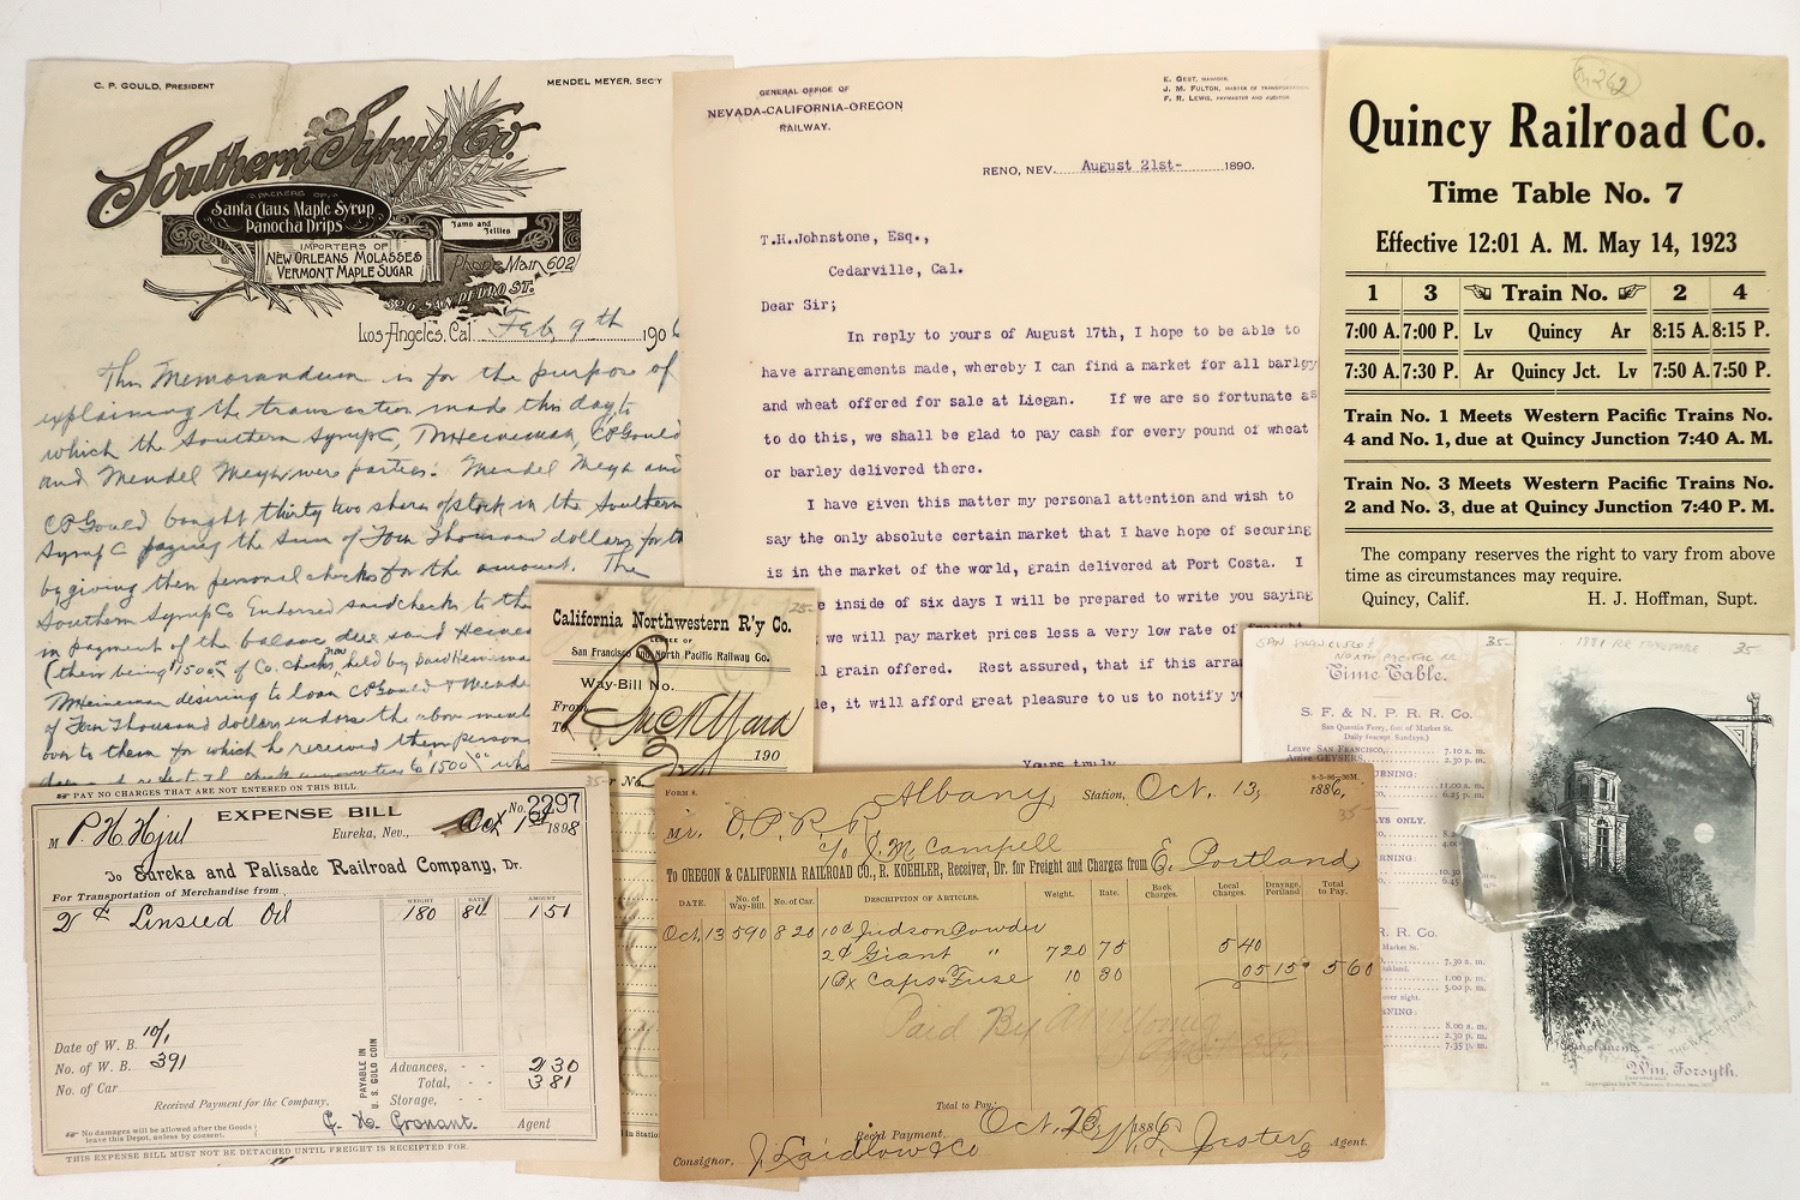 C. P. GOULD, PRESIDENT
MENDEL MEYER, SEC'Y
Southern Syrup Co.
PACKERS OF
Santa Claus Maple Syrup
Panocha Drips
Jams and
Jellies
IMPORTERS OF
NEW ORLEANS MOLASSES
VERMONT MAPLE SUGAR
Phone Main 602
326 SAN PEDRO ST.
Los Angeles, Cal. Feb, 9th 1906
This Memorandum is for the purpose of
explaining the transaction made this day, to
which the Southern Syrup C, M Heineman, CP Gould
and Mendel Meyer were parties. Mendel Meyer and
CP Gould bought thirty two shares of stock in the Southern
Syrup C paying the sum of Four Thousand dollars for
by giving their personal checks for the amount. The
Southern Syrup Co Endorsed said checks to
in payment of the balance due said
(there being $1500 of Co. checks now held by said
M Heineman desiring to loan CP Gould &
of Four Thousand dollars endorse the above
over to them for which he received their
GENERAL OFFICE OF
NEVADA-CALIFORNIA-OREGON
RAILWAY.
E. GEST, MANAGER.
J. M. FULTON, MASTER OF TRANSPORTATION
F. R. LEWIS, PAYMASTER AND AUDITOR
RENO, NEV. August 21st- 1890.
T.H.Johnstone, Esq.,
Cedarville, Cal.
Dear Sir;
In reply to yours of August 17th, I hope to be able to
have arrangements made, whereby I can find a market for all barley
and wheat offered for sale at Liegan. If we are so fortunate as
to do this, we shall be glad to pay cash for every pound of wheat
or barley delivered there.
I have given this matter my personal attention and wish to
say the only absolute certain market that I have hope of securing
is in the market of the world, grain delivered at Port Costa. I
e inside of six days I will be prepared to write you saying
we will pay market prices less a very low rate of freight
l grain offered. Rest assured, that if this arra
le, it will afford great pleasure to us to notify y
Yours truly
m262
Quincy Railroad Co.
Time Table No. 7
Effective 12:01 A. M. May 14, 1923
1 3 Train No. 2 4
7:00 A. 7:00 P. Lv Quincy Ar 8:15 A. 8:15 P.
7:30 A. 7:30 P. Ar Quincy Jct. Lv 7:50 A. 7:50 P.
Train No. 1 Meets Western Pacific Trains No.
4 and No. 1, due at Quincy Junction 7:40 A. M.
Train No. 3 Meets Western Pacific Trains No.
2 and No. 3, due at Quincy Junction 7:40 P. M.
The company reserves the right to vary from above
time as circumstances may require.
Quincy, Calif. H. J. Hoffman, Supt.
25-
California Northwestern R'y Co.
LESSEE OF
San Francisco and North Pacific Railway Co.
Way-Bill No.
From
To
190
r No.
in Statio
SAN FRANCISCO & 35-
NORTH PACIFIC RR
Time Table.
S. F. & N. P. R. R. Co.
San Quentin Ferry, foot of Market St.
Daily (except Sundays.)
Leave SAN FRANCISCO, 7.10 a. m.
Arrive GEYSERS, 2.30 p. m.
RNING:
11.00 a. m.
6.25 p. m.
YS ONLY.
RNING:
R. R. Co.
Market St.
7.30 a. m.
1.00 p. m.
5.00 p. m.
over night.
NING:
8.00 a. m.
2.30 p. m.
7.35 p. m.
1881 RR TIMETABLE 35-
Compliments
Wm. Forsyth.
35-
PAY NO CHARGES THAT ARE NOT ENTERED ON THIS BILL
EXPENSE BILL No. 2297
M P. H. Hjul Eureka, Nev., Oct 1st 1898
To Eureka and Palisade Railroad Company, Dr.
For Transportation of Merchandise from
WEIGHT RATE AMOUNT
2 Linseed Oil 180 84 1 51
Date of W. B. 10/1
No. of W. B. 391
No. of Car
PAYABLE IN
U. S. GOLD COIN
Advances, 2 30
Total, 3 81
Storage,
Received Payment for the Company,
No damages will be allowed after the Goods
leave this Depot, unless by consent.
Agent
THIS EXPENSE BILL MUST NOT BE DETACHED UNTIL FREIGHT IS RECEIPTED FOR.
FORM 8. 8-5-86-36M.
Albany Station, Oct. 13, 1886,
35-
Mr. O. P. R. R.
c/o J. M Campell
To OREGON & CALIFORNIA RAILROAD CO., R. KOEHLER, Receiver, Dr. for Freight and Charges from E. Portland
DATE. No. of Way-Bill. No. of Car. DESCRIPTION OF ARTICLES. Weight. Rate. Back Charges. Local Charges. Drayage, Portland Total to Pay.
Oct. 13 590 820 10 Judson Powder
2 Giant " 720 75 5 40
1 Bx Caps & Fuse 10 80 05 15 5 60
Paid By
Total to Pay,
Rec'd Payment, Oct. 23, 1886 Jester Agent.
Consignor, J. Laidlow & Co